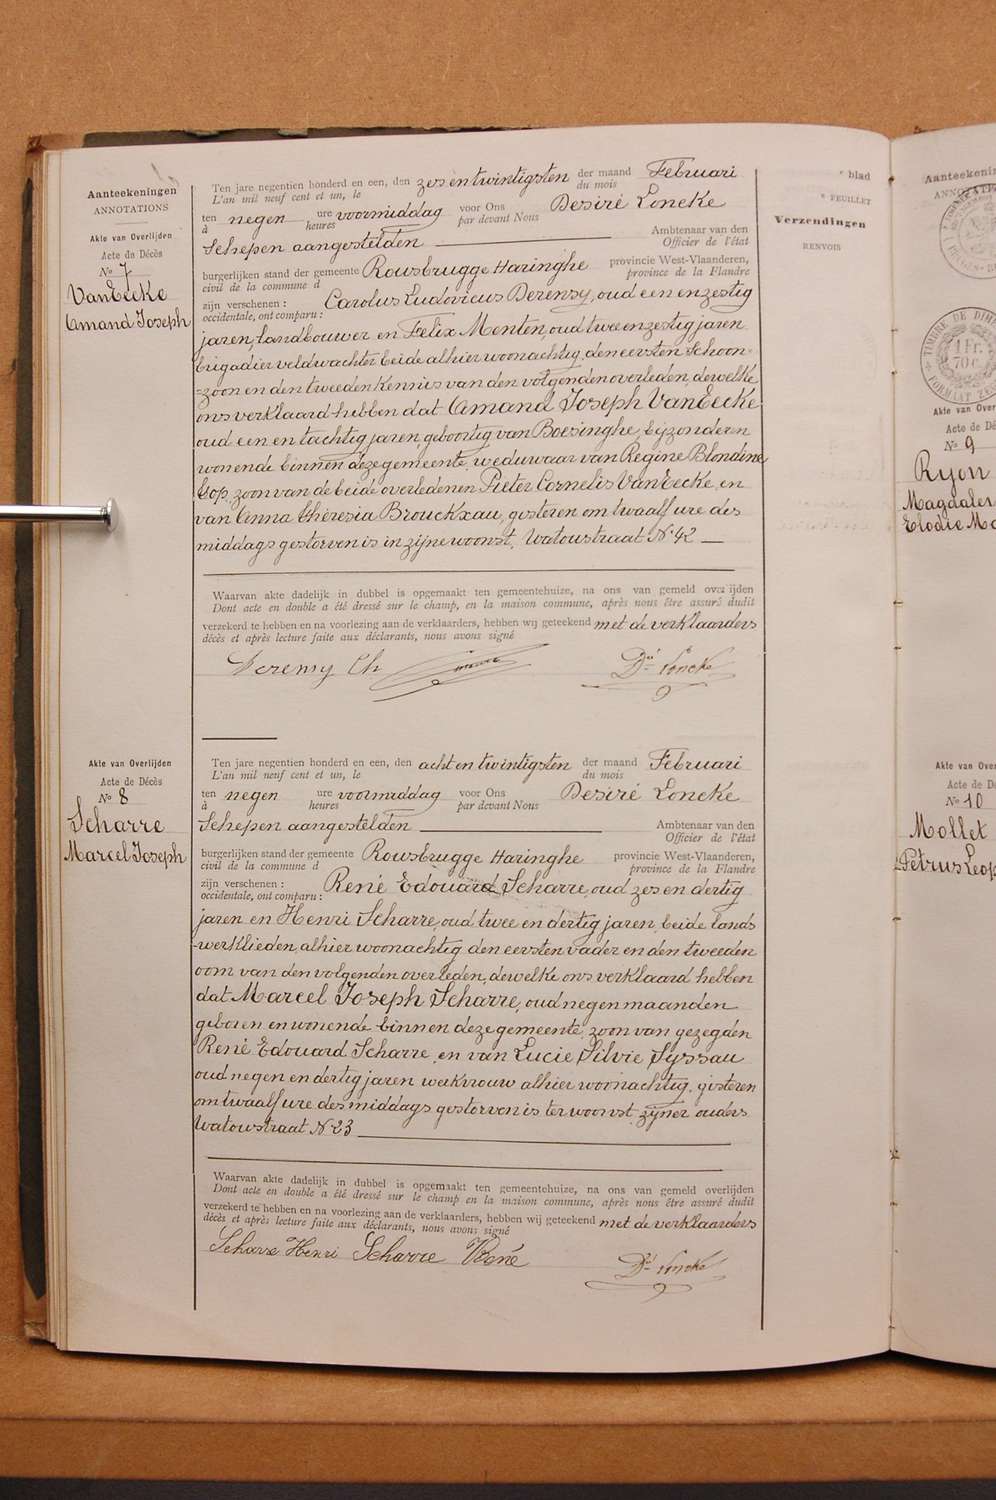 Aanteekeningen
ANNOTATIONS
Akte van Overlijden
Acte de Décès
No 7
VanEecke
Amand Joseph
Ten jare negentien honderd en een, den zes en twintigsten der maand Februari
L'an mil neuf cent et un, le du mois
ten negen ure voormiddag voor Ons Desiré Loncke
à heures par devant Nous
Schepen aangestelden Ambtenaar van den
Officier de l'état
burgerlijken stand der gemeente Rousbrugge Haringhe provincie West-Vlaanderen,
civil de la commune d province de la Flandre
zijn verschenen : Carolus Ludovicus Deremy, oud een en zestig
occidentale, ont comparu :
jaren, landbouwer en Felix Menten, oud twee en zestig jaren
brigadier veldwachter beide alhier woonachtig, den eersten schoon-
-zoon en den tweeden kennis van den volgenden overleden, dewelke
ons verklaard hebben dat Amand Joseph VanEecke
oud een en tachtig jaren, geboortig van Boesinghe, bijzonderen
wonende binnen deze gemeente, weduwaar van Regine Blondine
Gop, zoon van de beide overledenen Pieter Cornelis VanEecke, en
van Anna Theresia Brouckxau, gisteren om twaalf ure des
middags gestorven is in zijne woonst, Watoustraat No 42
Waarvan akte dadelijk in dubbel is opgemaakt ten gemeentehuize, na ons van gemeld overlijden
Dont acte en double a été dressé sur le champ, en la maison commune, après nous être assuré dudit
verzekerd te hebben en na voorlezing aan de verklaarders, hebben wij geteekend met de verklaarders
décès et après lecture faite aux déclarants, nous avons signé
Deremy Ch Dré Loncke
Akte van Overlijden
Acte de Décès
No 8
Scharre
Marcel Joseph
Ten jare negentien honderd en een, den acht en twintigsten der maand Februari
L'an mil neuf cent et un, le du mois
ten negen ure voormiddag voor Ons Desiré Loncke
à heures par devant Nous
Schepen aangestelden Ambtenaar van den
Officier de l'état
burgerlijken stand der gemeente Rousbrugge Haringhe provincie West-Vlaanderen,
civil de la commune d province de la Flandre
zijn verschenen : René Edouard Scharre, oud zes en dertig
occidentale, ont comparu :
jaren en Henri Scharre, oud twee en dertig jaren, beide lands
-werklieden, alhier woonachtig den eersten vader en den tweeden
oom van den volgenden overleden, dewelke ons verklaard hebben
dat Marcel Joseph Scharre, oud negen maanden
geboren en wonende binnen deze gemeente, zoon van gezegden
René Edouard Scharre, en van Lucie Silvie Syssau
oud negen en dertig jaren werkvrouw alhier woonachtig, gisteren
om twaalf ure des middags gestorven is ter woonst zijner ouders
Watoustraat No 23
Waarvan akte dadelijk in dubbel is opgemaakt ten gemeentehuize, na ons van gemeld overlijden
Dont acte en double a été dressé sur le champ en la maison commune, après nous être assuré dudit
verzekerd te hebben en na voorlezing aan de verklaarders, hebben wij geteekend met de verklaarders
décès et après lecture faite aux déclarants, nous avons signé
Scharre Henri Scharre René Dré Loncke
blad
FEUILLET
Verzendingen
RENVOIS
Aanteekeningen
TIMBRE DE DIM
1 Fr.
70 c.
Akte van Over
Acte de Dé
No 9
Ryon
Magdalen
Elodie Ma
Akte van Over
Acte de D
No 10
Mollet
Petrus Leop